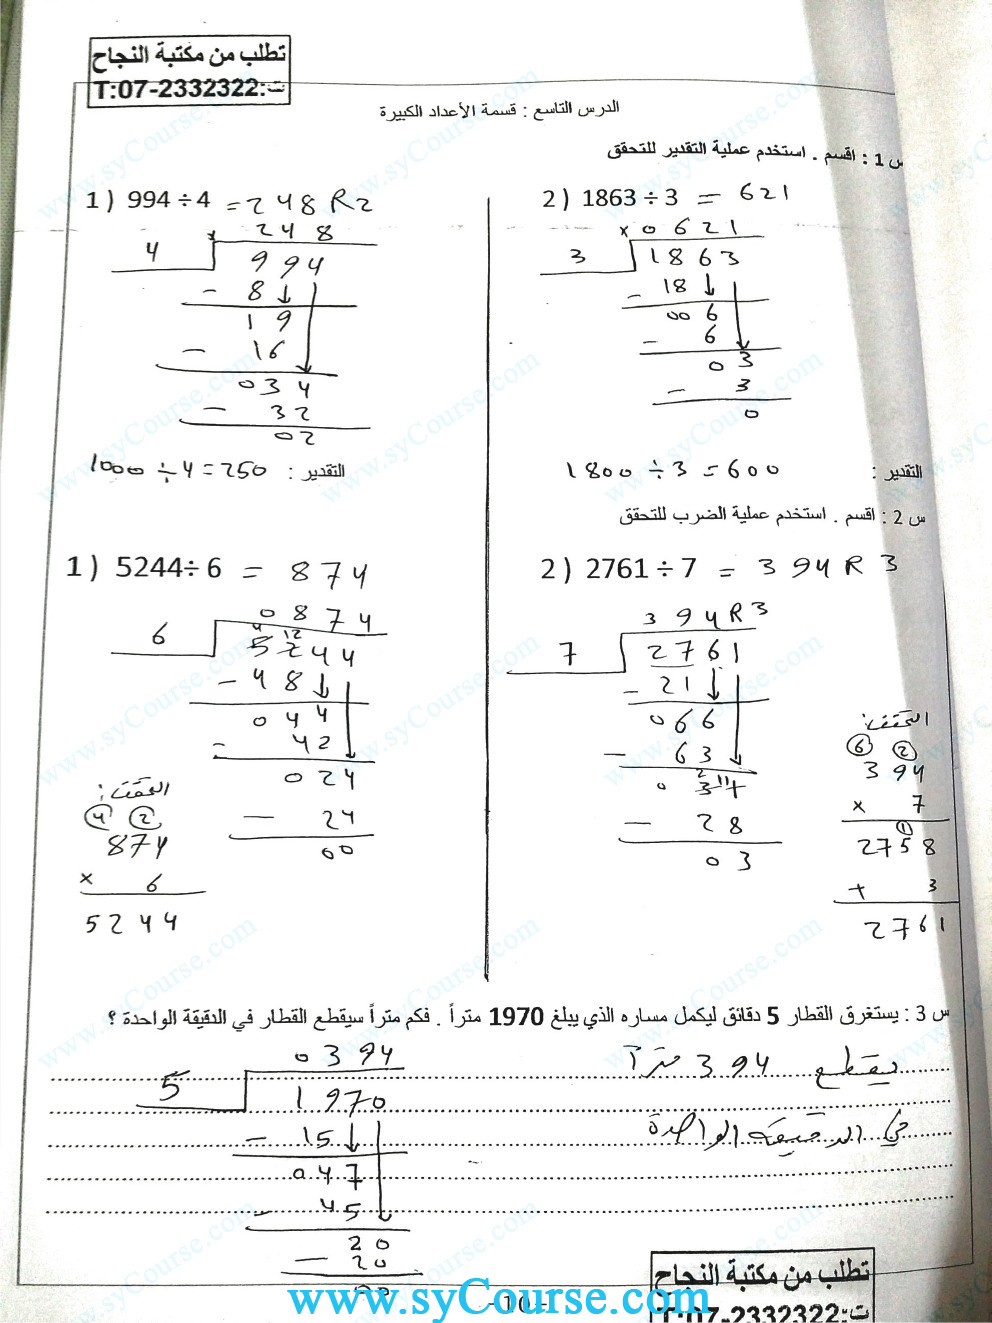 تطلب من مكتبة النجاح
ت:T:07-2332322
الدرس التاسع : قسمة الأعداد الكبيرة
س 1 : اقسم . استخدم عملية التقدير للتحقق
1 ) 994 ÷ 4 = 248 R2
248
4 994
- 8
19
- 16
034
- 32
02
التقدير : 1000 ÷ 4 = 250
2 ) 1863 ÷ 3 = 621
× 0621
3 1863
- 18
006
- 6
03
- 3
0
التقدير : 1800 ÷ 3 = 600
س 2 : اقسم . استخدم عملية الضرب للتحقق
1 ) 5244÷ 6 = 874
0874
4 12
6 5244
- 48
044
- 42
024
- 24
00
التحقق :
4 2
874
× 6
5244
2 ) 2761 ÷ 7 = 394 R 3
394 R3
7 2761
- 21
066
- 63
2 11
031
- 28
03
التحقق :
6 2
394
× 7
1
2758
+ 3
2761
س 3 : يستغرق القطار 5 دقائق ليكمل مساره الذي يبلغ 1970 متراً . فكم متراً سيقطع القطار في الدقيقة الواحدة ؟
يقطع 394 متراً
في الدقيقة الواحدة
0394
5 1970
- 15
047
- 45
20
- 20
00
تطلب من مكتبة النجاح
ت:T:07-2332322
- 10 -
www.syCourse.com